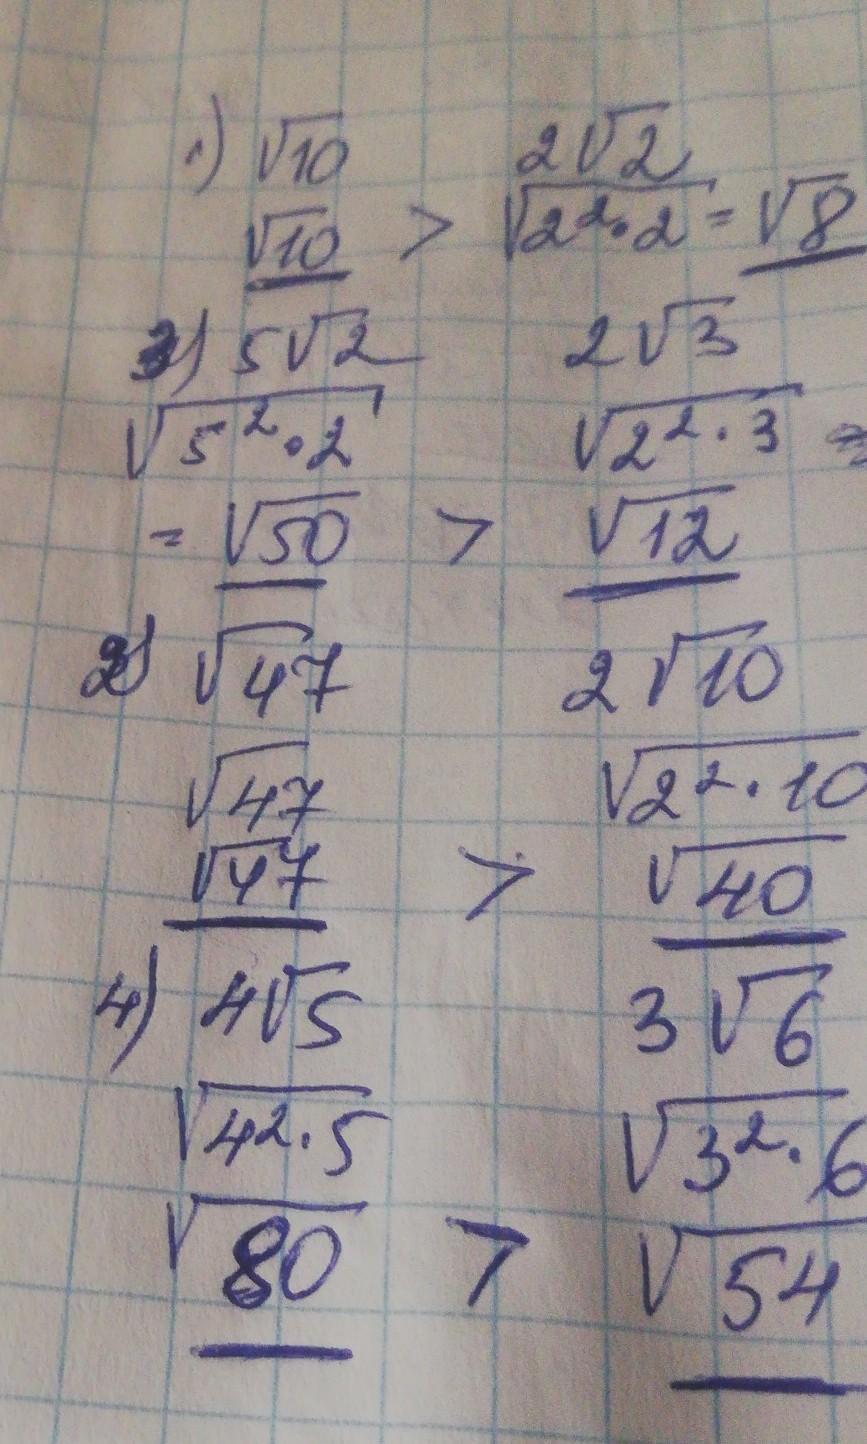 1) √10 2√2
√10 > √2²·2 = √8
3) 5√2 2√3
√5²·2 √2²·3 =
= √50 > √12
2) √47 2√10
√47 √2²·10
√47 > √40
4) 4√5 3√6
√4²·5 √3²·6
√80 > √54